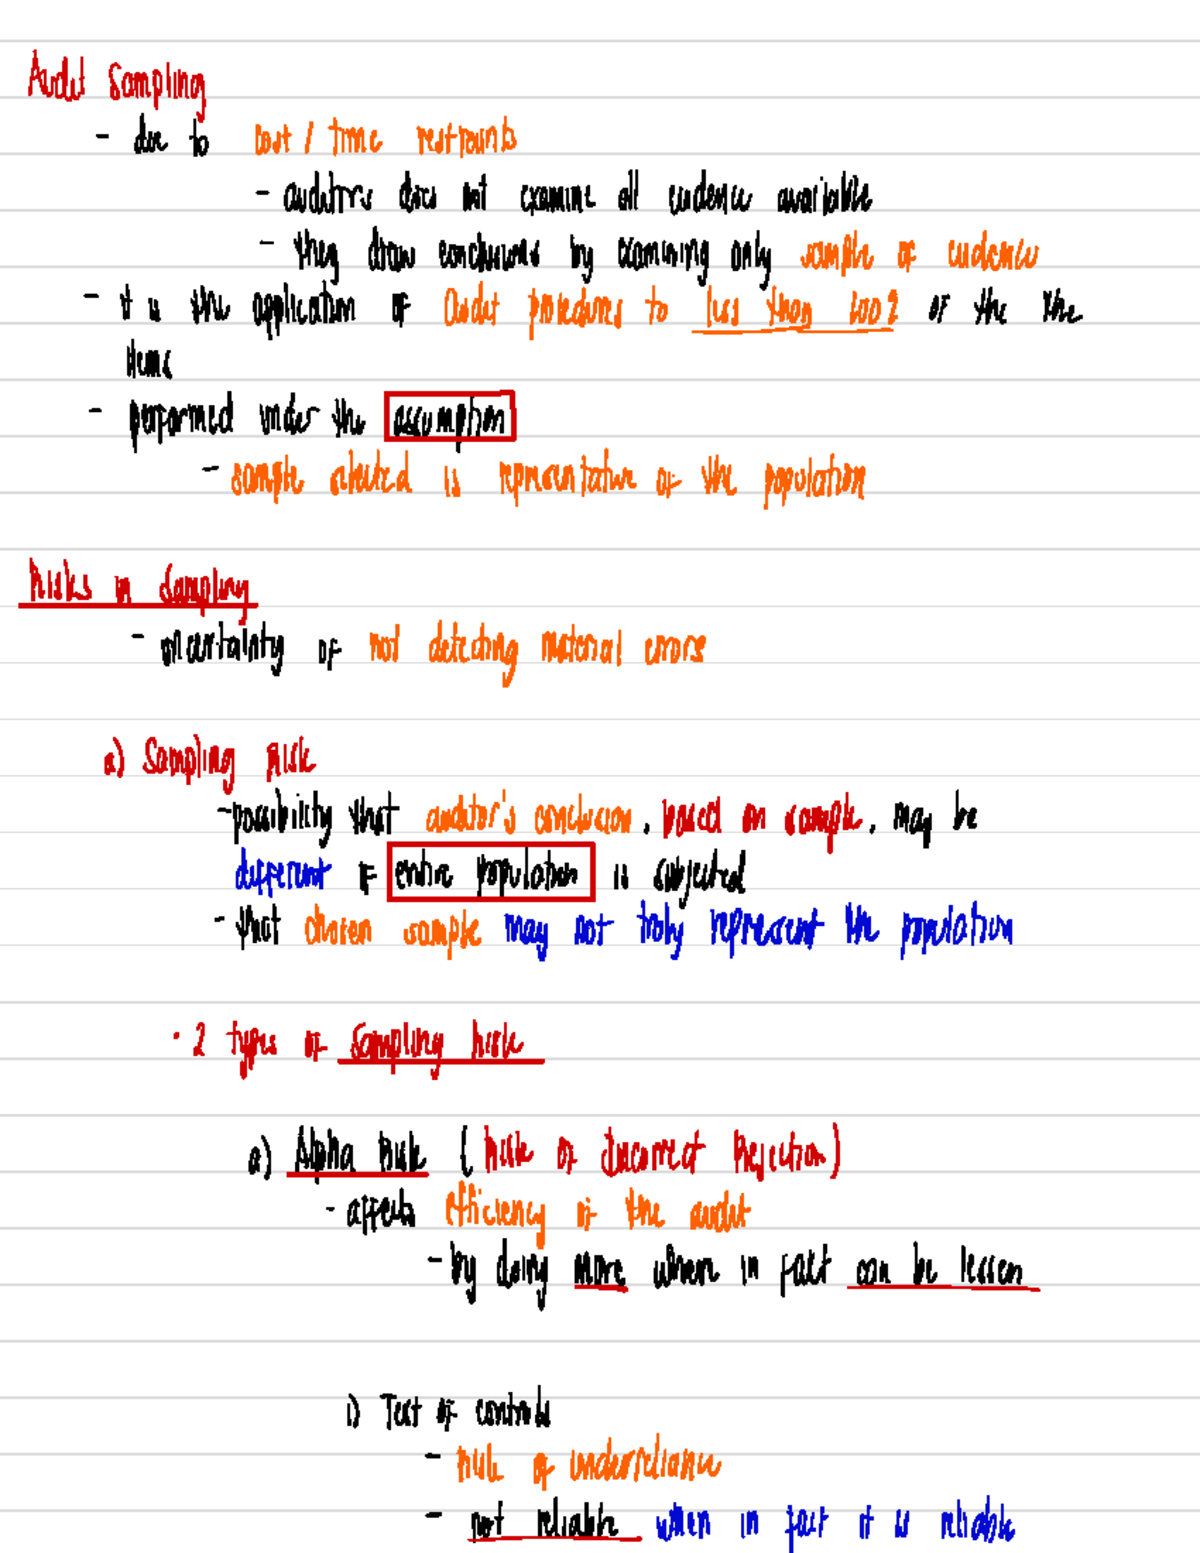 Audit Sampling
- due to cost / time restraints
- auditors does not examine all evidence available
- they draw conclusions by examining only sample of evidence
- it is the application of Audit procedures to less than 100% of the the
items
- performed under the assumption
- sample selected is representative of the population
Risks in Sampling
- uncertainty of not detecting material errors
a) Sampling Risk
- possibility that auditor's conclusion, based on sample, may be
different if entire population is subjected
- that chosen sample may not truly represent the population
• 2 types of Sampling Risk
a) Alpha Risk (Risk of Incorrect Rejection)
- affects efficiency of the audit
- by doing more when in fact can be lessen
i) Test of controls
- risk of underreliance
- not reliable when in fact it is reliable